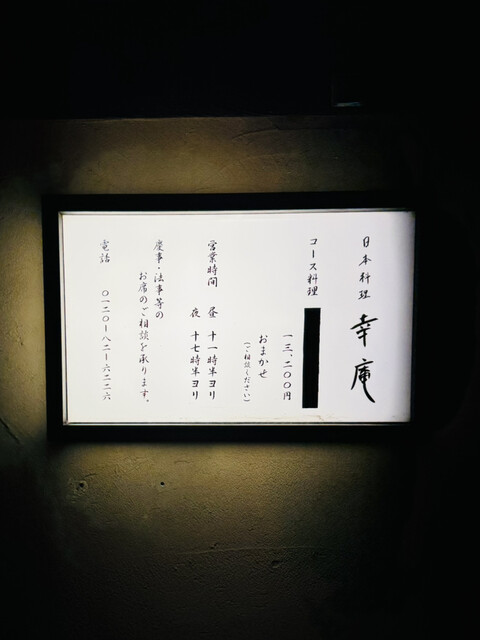 日本料理 幸庵
コース料理
一三、二〇〇円
おまかせ
(ご相談ください)
営業時間 昼 十一時半ヨリ
夜 十七時半ヨリ
慶事・法事等の
お席のご相談を承ります。
電話 〇一二〇-八二-六二二六